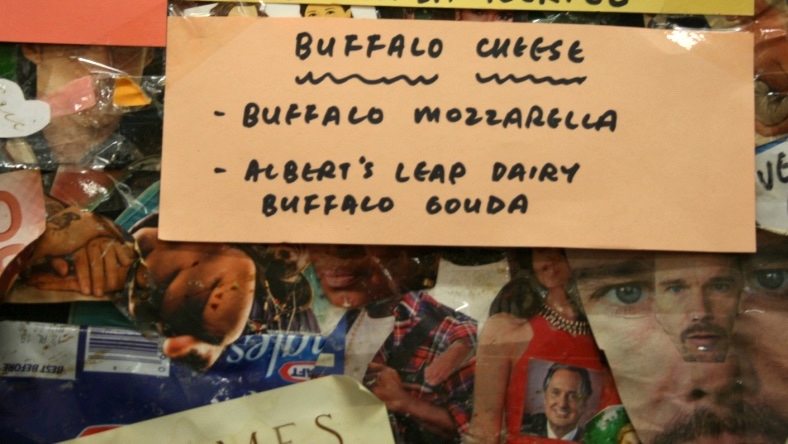 BUFFALO CHEESE
- BUFFALO MOZZARELLA
- ALBERT'S LEAP DAIRY
BUFFALO GOUDA
VE
BEST BEFORE
gles
AFT
MES